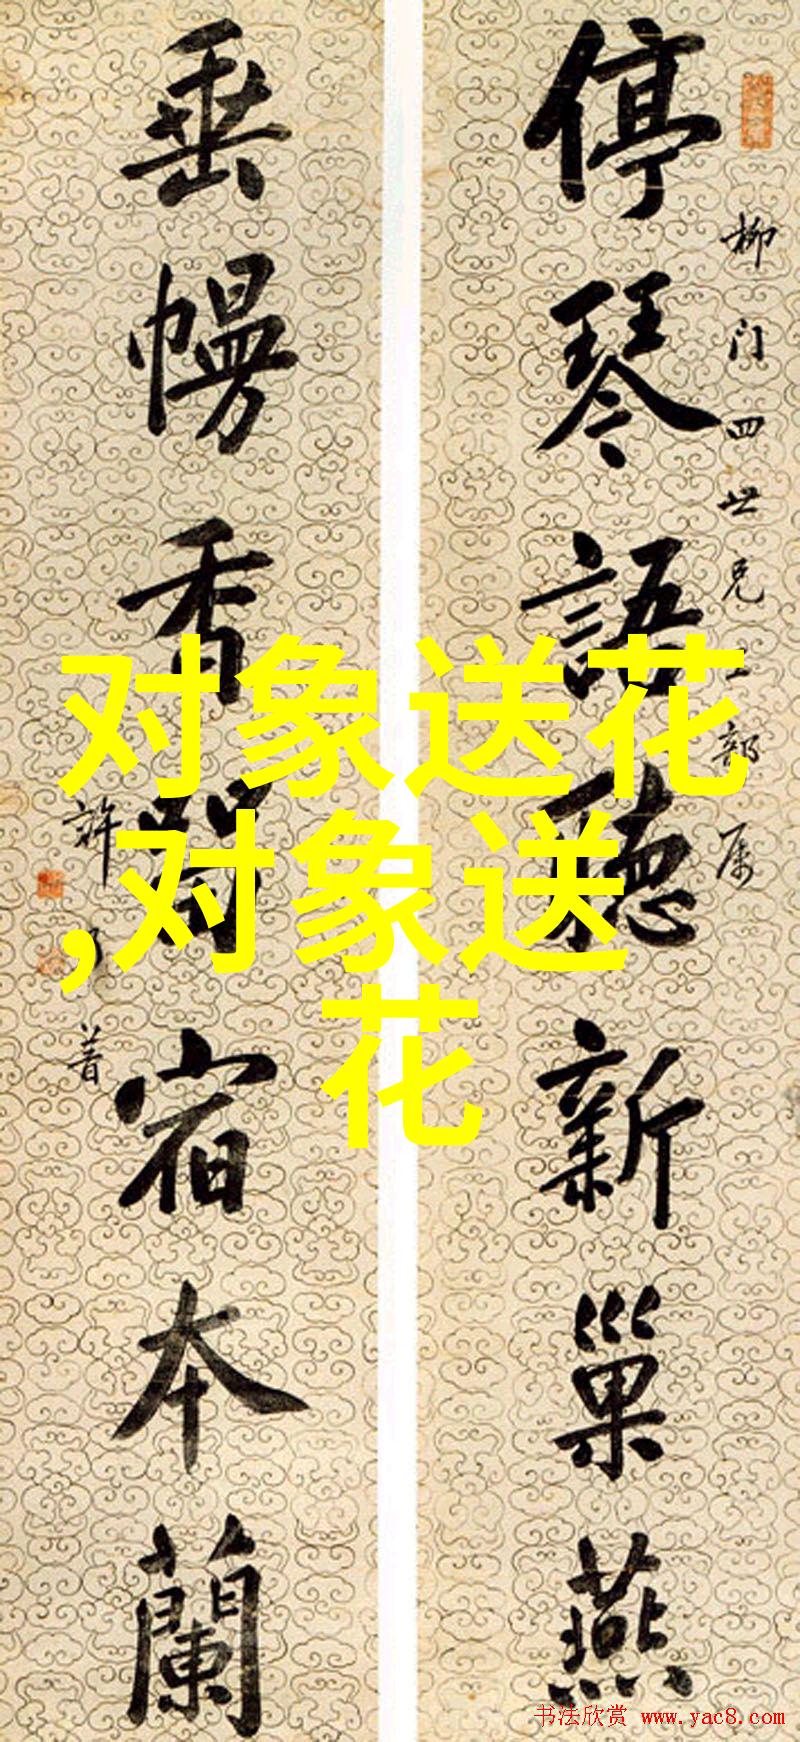 停琴語聽新巢燕
柳门四世兄
部属
垂幔香留宿本蘭
許乃普
对象送花
,对象送
花
书法欣赏 www.yac8.com